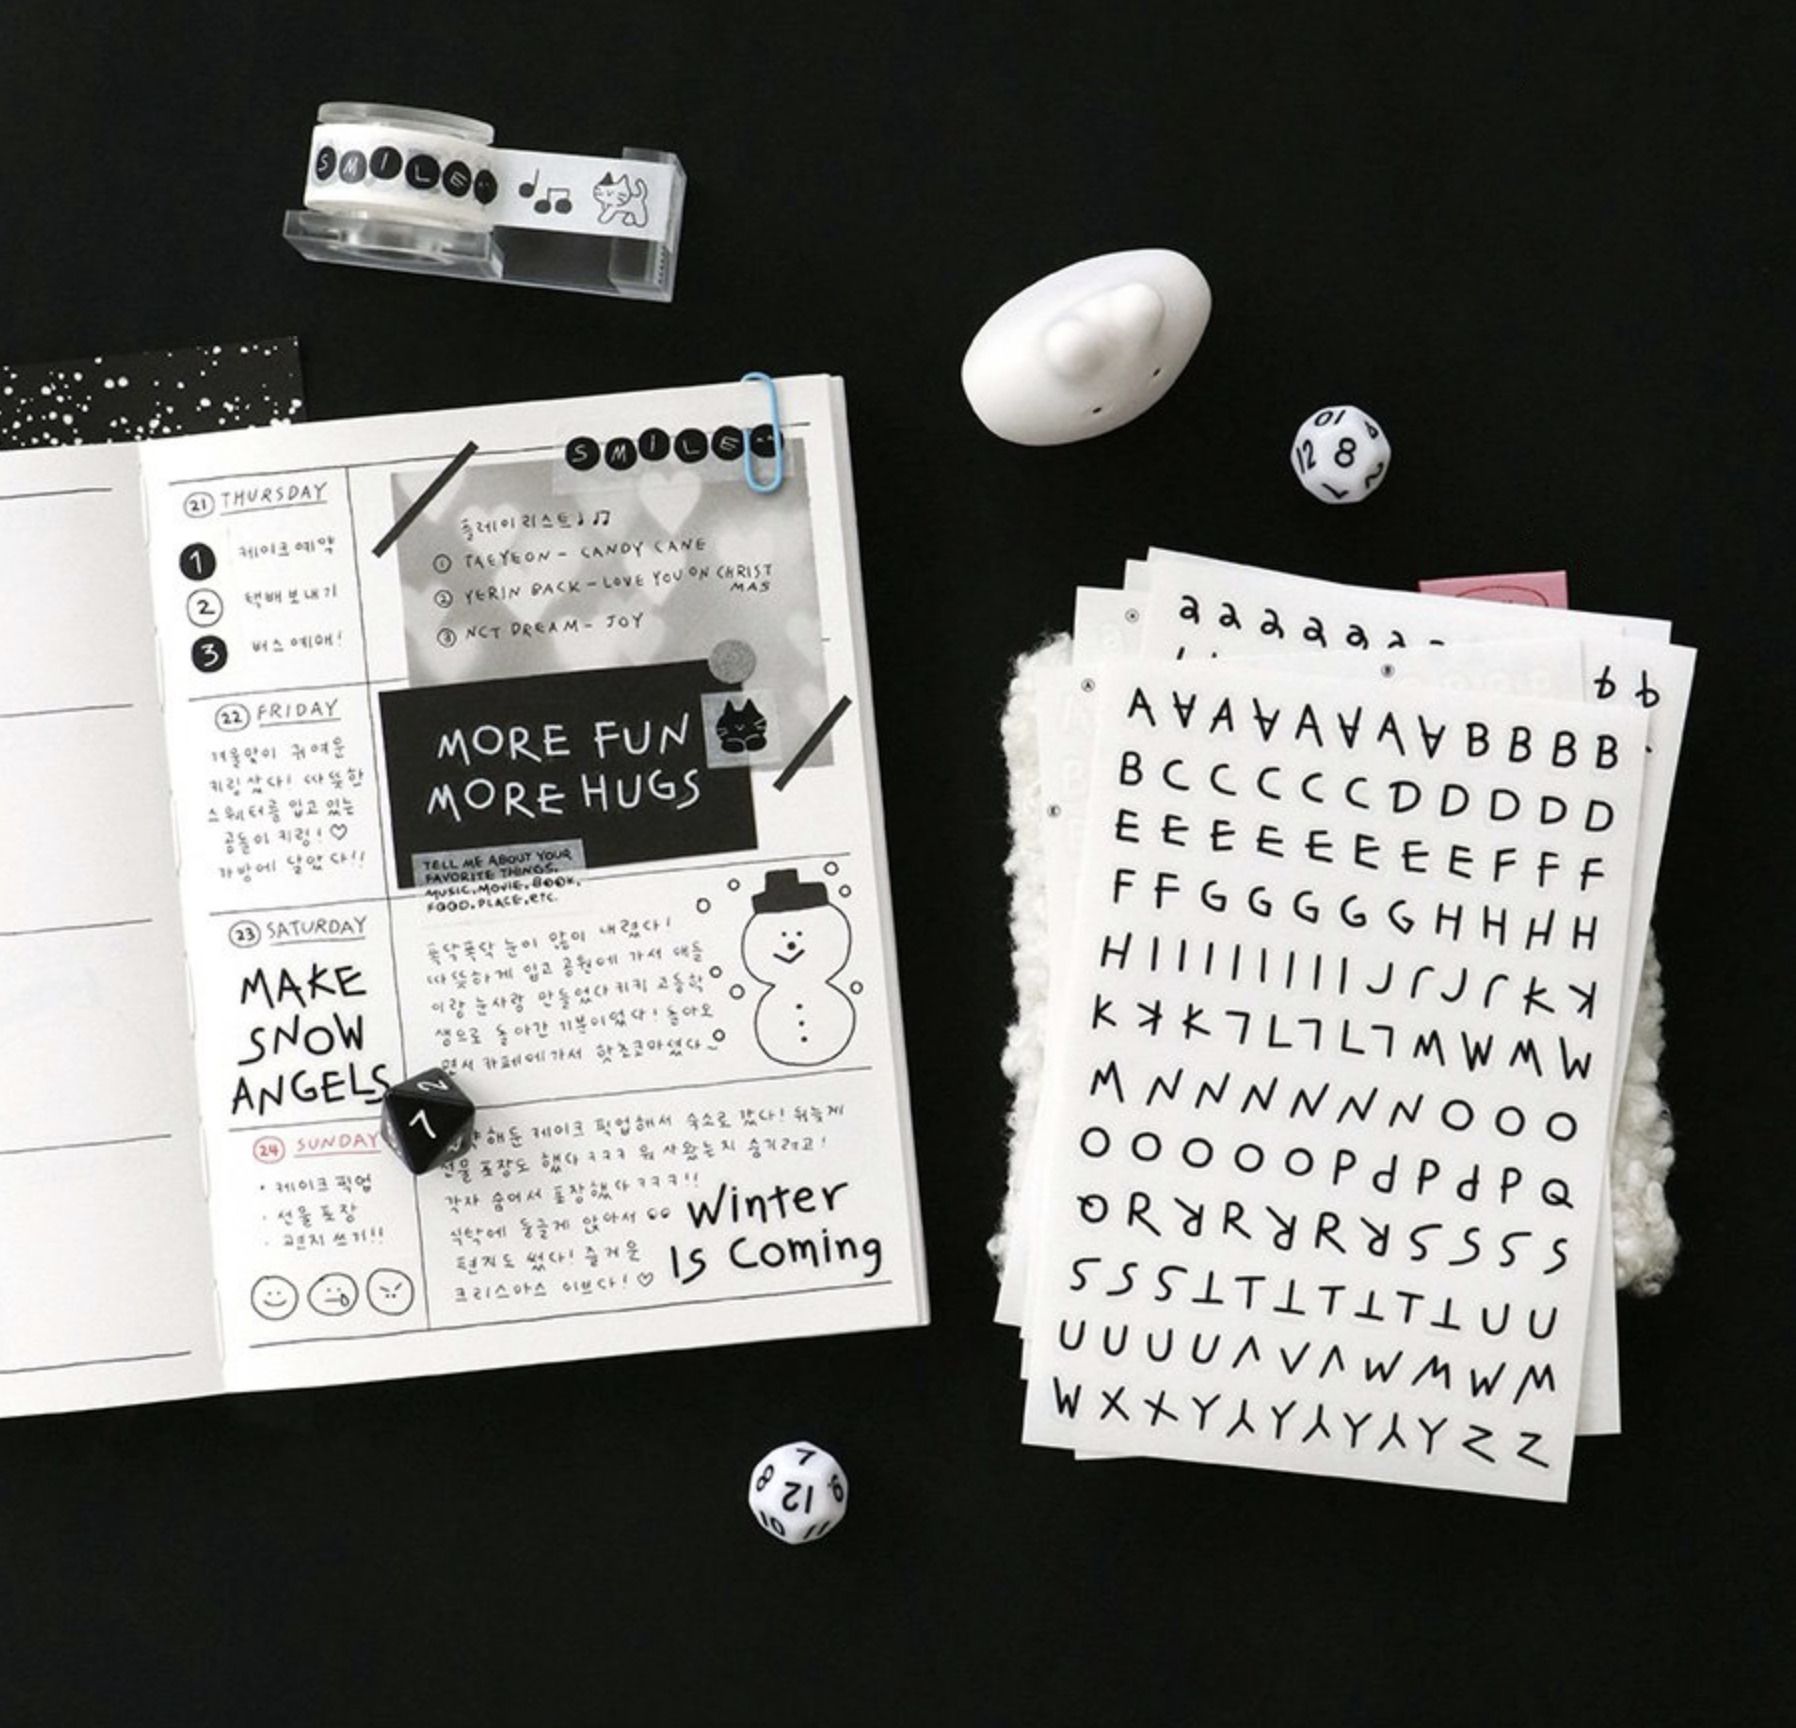 SMILE
SMILE
21 THURSDAY
1 케이크 예약
2 택배 보내기
3 버스 예매!
플레이리스트
① TAEYEON - CANDY CANE
② YERIN BACK - LOVE YOU ON CHRIST
MAS
③ NCT DREAM - JOY
MORE FUN
MORE HUGS
TELL ME ABOUT YOUR
FAVORITE THINGS.
MUSIC, MOVIE, BOOK,
FOOD, PLACE, etc.
22 FRIDAY
겨울맞이 귀여운
키링 샀다! 따뜻한
스웨터를 입고 있는
곰돌이 키링! ♡
가방에 달았다!!
23 SATURDAY
MAKE
SNOW
ANGELS
폭닥폭닥 눈이 많이 내렸다!
따뜻하게 입고 공원에 가서 애들
이랑 눈사람 만들었다 키키 고등학
생으로 돌아간 기분이었다! 돌아오
면서 카페에 가서 핫초코 마셨다
24 SUNDAY
• 케이크 픽업
· 선물 포장
· 편지 쓰기!!
해둔 케이크 픽업해서 숙소로 갔다! 뒤늦게
선물 포장도 했다 ㅋㅋㅋ 뭐 사왔는지 숨기려고!
각자 숨어서 포장했다 ㅋㅋㅋ!!
식탁에 둥글게 앉아서
편지도 썼다! 즐거운
크리스마스 이브다! ♡
Winter
Is Coming
10
12 8
7 2
1 2
7
8 12 9
10 11
a a a a a a
b b
A A A A A A A A B B B B
B C C C C C D D D D D
E E E E E E E E F F F
F F G G G G G H H H H
H I I I I I I I I J J J J K K
K K K L L L L L M M M M
M N N N N N N O O O
O O O O O P P P P P Q
Q R R R R R R S S S S
S S S T T T T T T T U U
U U U U V V V W W W W
W X X Y Y Y Y Y Y Y Z Z